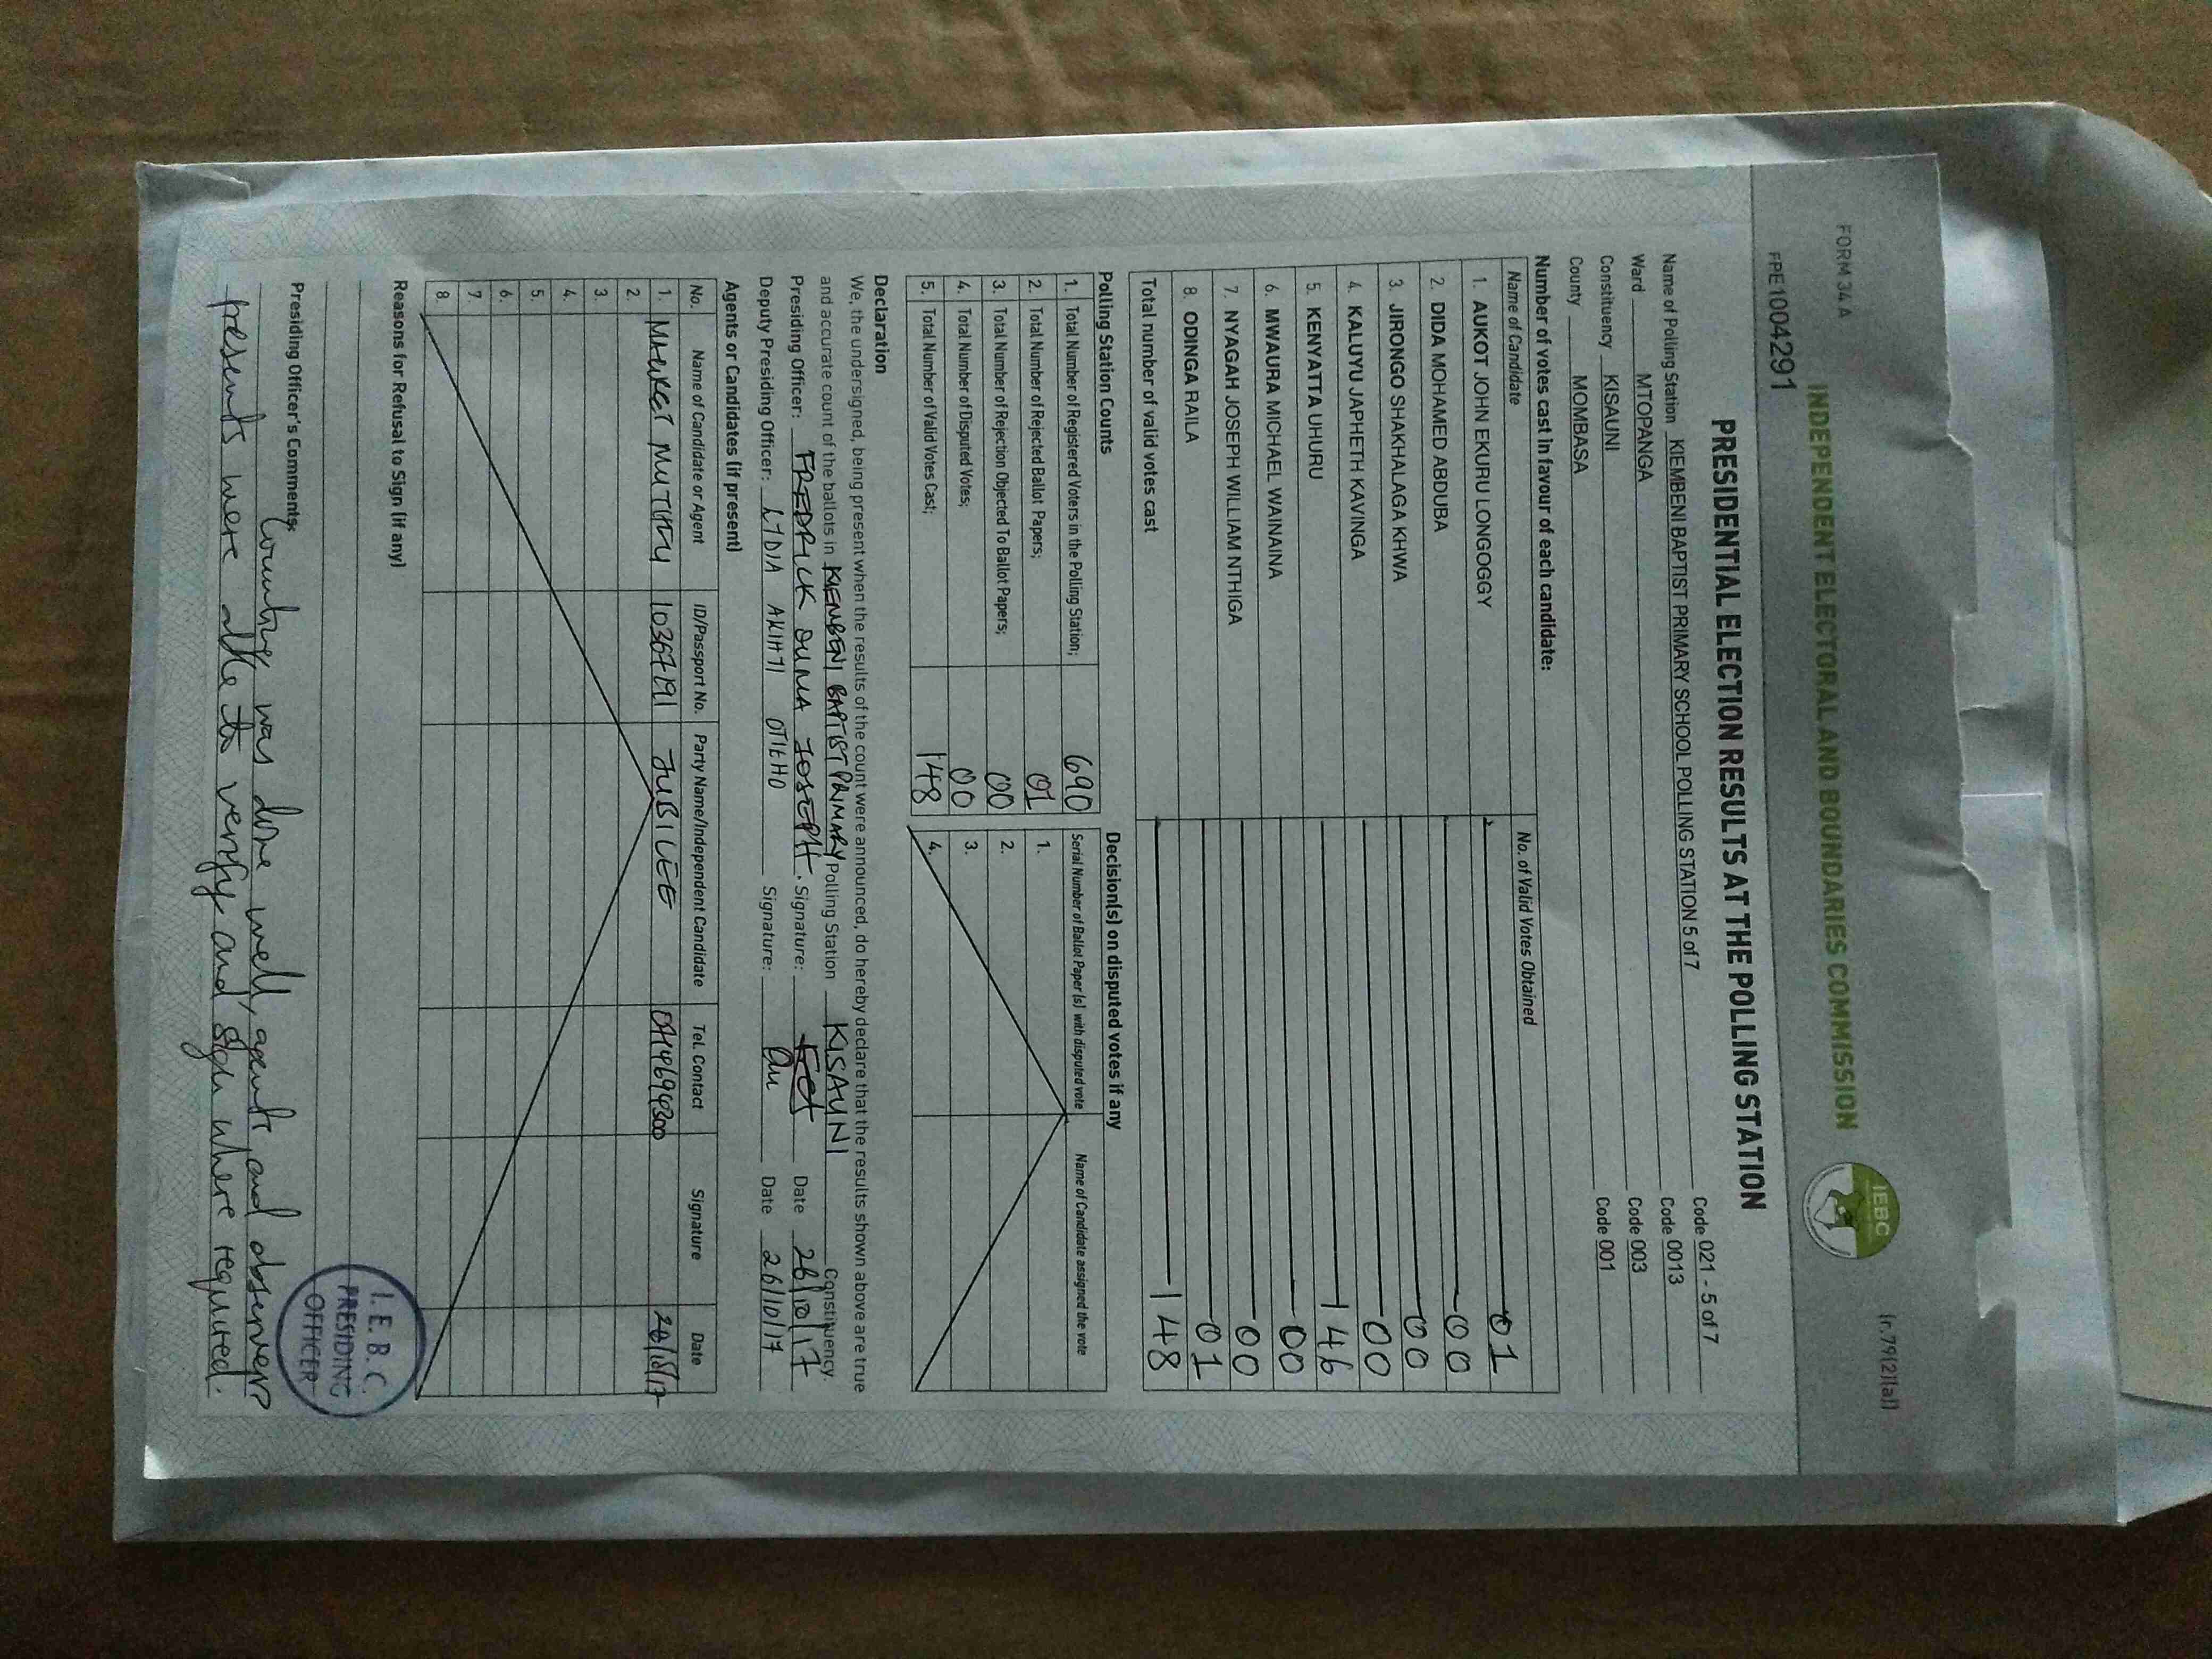 FORM 34 A
(r.79(2)(a))
INDEPENDENT ELECTORAL AND BOUNDARIES COMMISSION
IEBC
FPE1004291
PRESIDENTIAL ELECTION RESULTS AT THE POLLING STATION
Name of Polling Station KIEMBENI BAPTIST PRIMARY SCHOOL POLLING STATION 5 of 7 Code 021 - 5 of 7
Ward MTOPANGA Code 0013
Constituency KISAUNI Code 003
County MOMBASA Code 001
Number of votes cast in favour of each candidate:
Name of Candidate No. of Valid Votes Obtained
1. AUKOT JOHN EKURU LONGOGGY 01
2. DIDA MOHAMED ABDUBA 00
3. JIRONGO SHAKHALAGA KHWA 00
4. KALUYU JAPHETH KAVINGA 00
5. KENYATTA UHURU 146
6. MWAURA MICHAEL WAINAINA 00
7. NYAGAH JOSEPH WILLIAM NTHIGA 00
8. ODINGA RAILA 01
Total number of valid votes cast 148
Polling Station Counts Decision(s) on disputed votes if any
1. Total Number of Registered Voters in the Polling Station; 690
2. Total Number of Rejected Ballot Papers; 01
3. Total Number of Rejection Objected To Ballot Papers; 00
4. Total Number of Disputed Votes; 00
5. Total Number of Valid Votes Cast; 148
Serial Number of Ballot Paper (s) with disputed vote Name of Candidate assigned the vote
1.
2.
3.
4.
Declaration
We, the undersigned, being present when the results of the count were announced, do hereby declare that the results shown above are true
and accurate count of the ballots in KIEMBENI BAPTIST PRIMARY Polling Station KISAUNI Constituency.
Presiding Officer: FREDRICK OUMA JOSEPH. Signature: Date 26/10/17
Deputy Presiding Officer: LYDIA AKINYI OTIENO Signature: Date 26/10/17
Agents or Candidates (if present)
No. Name of Candidate or Agent ID/Passport No. Party Name/Independent Candidate Tel. Contact Signature Date
1. 10367191 JUBILEE 26/10/17
2.
3.
4.
5.
6.
7.
8.
Reasons for Refusal to Sign (if any)
I.E.B.C.
PRESIDING
OFFICER
Presiding Officer's Comments:
Counting was done well, agents and observers
presents where able to verify and sign where required.